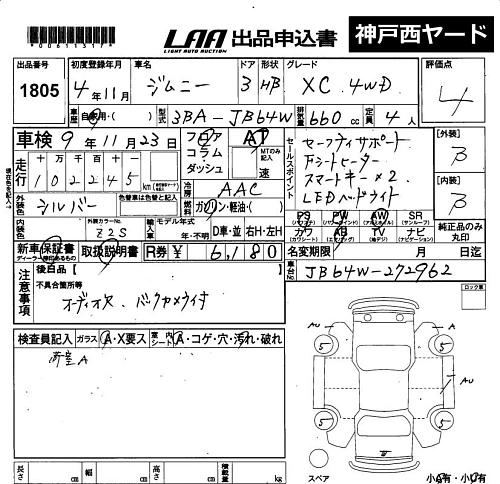 *00611317*
LAA 出品申込書 神戸西ヤード
LIGHT AUTO AUCTION
出品番号 初度登録年月 車名 ドア 形状 グレード 評価点
1805 4年11月 ジムニー 3 HB XC 4WD 4
車歴 自家用・( ) 型式 3BA-JB64W 排気量 660cc 定員 4人
車検 9年11月23日 フロア AT セールスポイント セーフティサポート 【外装】
走行 十 万 千 百 十 一 コラム MTのみ記入 Fシートヒーター B
102245 km ダッシュ 速 スマートキー×2 【内装】
冷房 AAC LEDヘッドライト B
外装色 シルバー 色替車は色替と記入 燃料 ガソリン・軽油・( )
PS PW AW SR 純正品のみ丸印
外装カラーNo. Z2S 輸入車 モデル年式 年・不明 D車・並 右H・左H カワ AB TV ナビ
新車保証書 取扱説明書 R券 ¥ 6,180 名変期限 月 日迄
ディーラー捺印あるもの
車台No. JB64W-272962
注意事項 後白品[ ] ロック車
不具合箇所等
オーディオス、バックカメライ付
検査員記入 ガラス A・X要ス 室内シート A・コゲ・穴・汚れ・破れ
AU
5 5
AU
5 5
長さ cm 幅 cm 高さ cm 積載量 kg
スペア 小キ有・小凹有